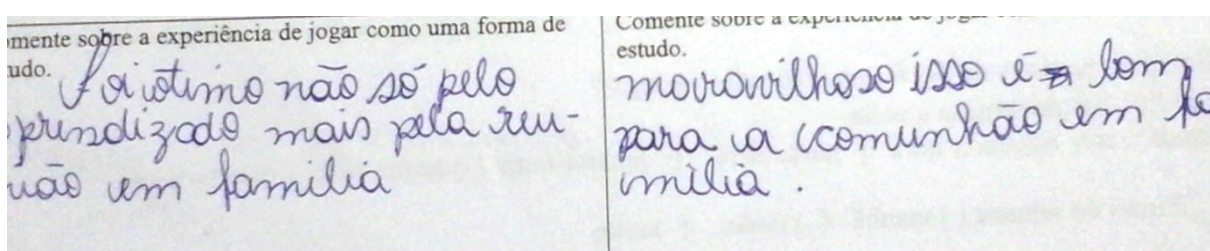 mente sobre a experiência de jogar como uma forma de
udo.
Foi otimo não só pelo
prendizado mais pela reu-
nião em familia
Comente sobre a experiência de jogar
estudo.
maravilhoso isso é bom
para a comunhão em fa
milia.